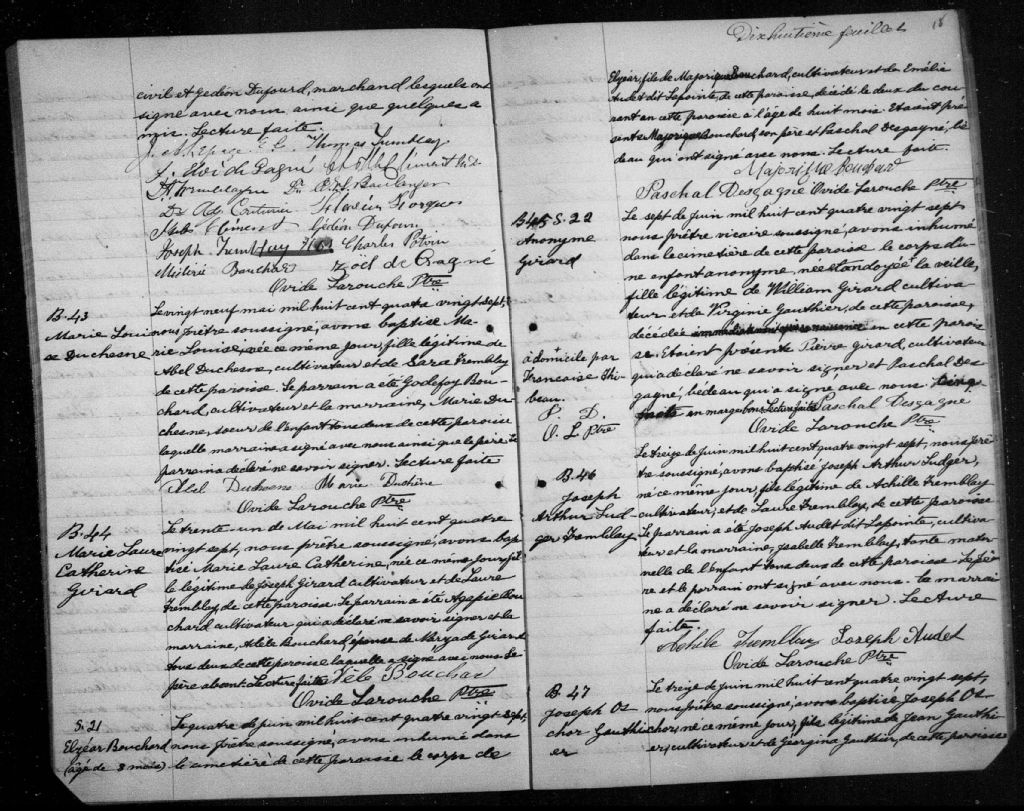 civil et Gedéon Dufourd, marchand, lesquels ont
signé avec nous ainsi que quelques a
mis. Lecture faite.
Thomas Tremblay
J. Eloi de Gagné
Boulanger
Dr Ad. Couturier
Gédéon Dufour
Joseph Tremblay Charles Potvin
Misterie Bouchard Zoël de Gagné
Ovide Larouche Ptre
B-43
Marie Loui
se Duchesne
Le vingt neuf mai mil huit cent quatre vingt sept,
nous prêtre soussigné, avons baptisé Ma-
rie Louise, née ce même jour, fille légitime de
Abel Duchesne, cultivateur et de Sara Tremblay
de cette paroisse. Le parrain a été Godefoy Bou-
chard, cultivateur et la marraine, Marie Du-
chesne, soeur de l'enfant tous deux de cette paroisse
laquelle marraine a signé avec nous ainsi que le père. Le
parrain a déclaré ne savoir signer. Lecture faite
Abel Duchesne Marie Duchêne
Ovide Larouche Ptre
B-44
Marie Laure
Catherine
Girard
Le trente-un de Mai mil huit cent quatre
vingt sept, nous prêtre soussigné, avons bap-
tisé Marie Laure Catherine, née ce même jour, fil-
le légitime de Joseph Girard cultivateur et de Laure
Tremblay de cette paroisse. Le parrain a été Agapit Bou-
chard cultivateur qui a déclaré ne savoir signer et la
marraine, Adèle Bouchard, épouse de Girard
tous deux de cette paroisse laquelle a signé avec nous. Le
père absent. Lecture faite Bouchard
Ovide Larouche Ptre
S. 21
Elzéar Bouchard
(âgé de 8 mois)
Le quatre de juin mil huit cent quatre vingt sept,
nous prêtre soussigné, avons inhumé dans
le cimetière de cette paroisse le corps de
Dixhuitième feuillet 18
Elzéar, fils de Majorique Bouchard, cultivateur et de Emélie
Audet dit Lapointe, de cette paroisse, décédé le deux du cou-
rant en cette paroisse à l'âge de huit mois. Etaient pré
sents Majorique Bouchard, son père et Paschal Desgagné, bé
deau qui ont signé avec nous. Lecture faite.
Majorique Bouchard
Paschal Desgagné Ovide Larouche Ptre
B45 S-22
Anonyme
Girard
Le sept de Juin mil huit cent quatre vingt sept
nous prêtre vicaire soussigné, avons inhumé
dans le cimetière de cette paroisse le corps du
ne enfant anonyme, née et ondoyée + la veille,
fille légitime de William Girard cultiva
teur et de Virginie Gauthier, de cette paroisse,
décédée en cette parois
se. Etaient présents Pierre Girard, cultivateur
qui a déclaré ne savoir signer et Paschal Des
gagné, bédeau qui a signé avec nous.
en marge bons Lecture faite Paschal Desgagné
Ovide Larouche Ptre
+
à domicile par
Francoise Thi-
beau.
P. D.
O. L Ptre
B-46
Joseph
Arthur Lud-
ger Tremblay
Le treize de juin mil huit cent quatre vingt sept, nous prê-
tre soussigné, avons baptisé Joseph Arthur Ludger,
né ce même jour, fils légitime de Achille Tremblay
cultivateur, et de Laure Tremblay, de cette paroisse
Le parrain a été Joseph Audet dit Lapointe, cultiva-
teur et la marraine, Isabelle Tremblay, tante mater-
nelle de l'enfant tous deux de cette paroisse. Le pè-
re et le parrain ont signé avec nous. La marrai
ne a déclaré ne savoir signer. Lecture
faite.
Achile Tremblay Joseph Audet
Ovide Larouche Ptre
B-47
Joseph Os-
chor Gauthi-
er
Le treize de juin mil huit cent quatre vingt sept,
nous prêtre soussigné, avons baptisé Joseph Os-
chor, né ce même jour, fils légitime de Jean Gauthi-
er, cultivateur et de Georgina Gauthier, de cette paroisse